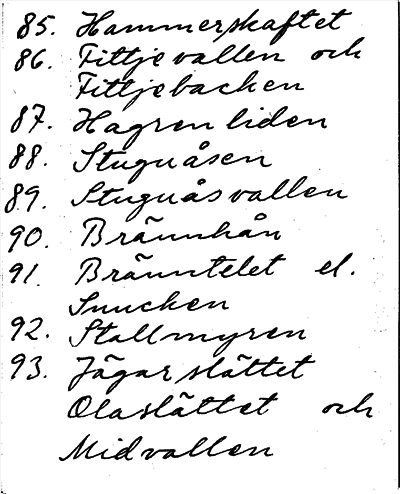 85. Hammerskaftet
86. Fittjevallen och
Fittjebacken
87. Hagrenliden
88. Stuguåsen
89. Stuguåsvallen
90. Brännhån
91. Bränntelet el.
Snucken
92. Stallmyren
93. Jägarslättet
Olaslättet och
Midvallen